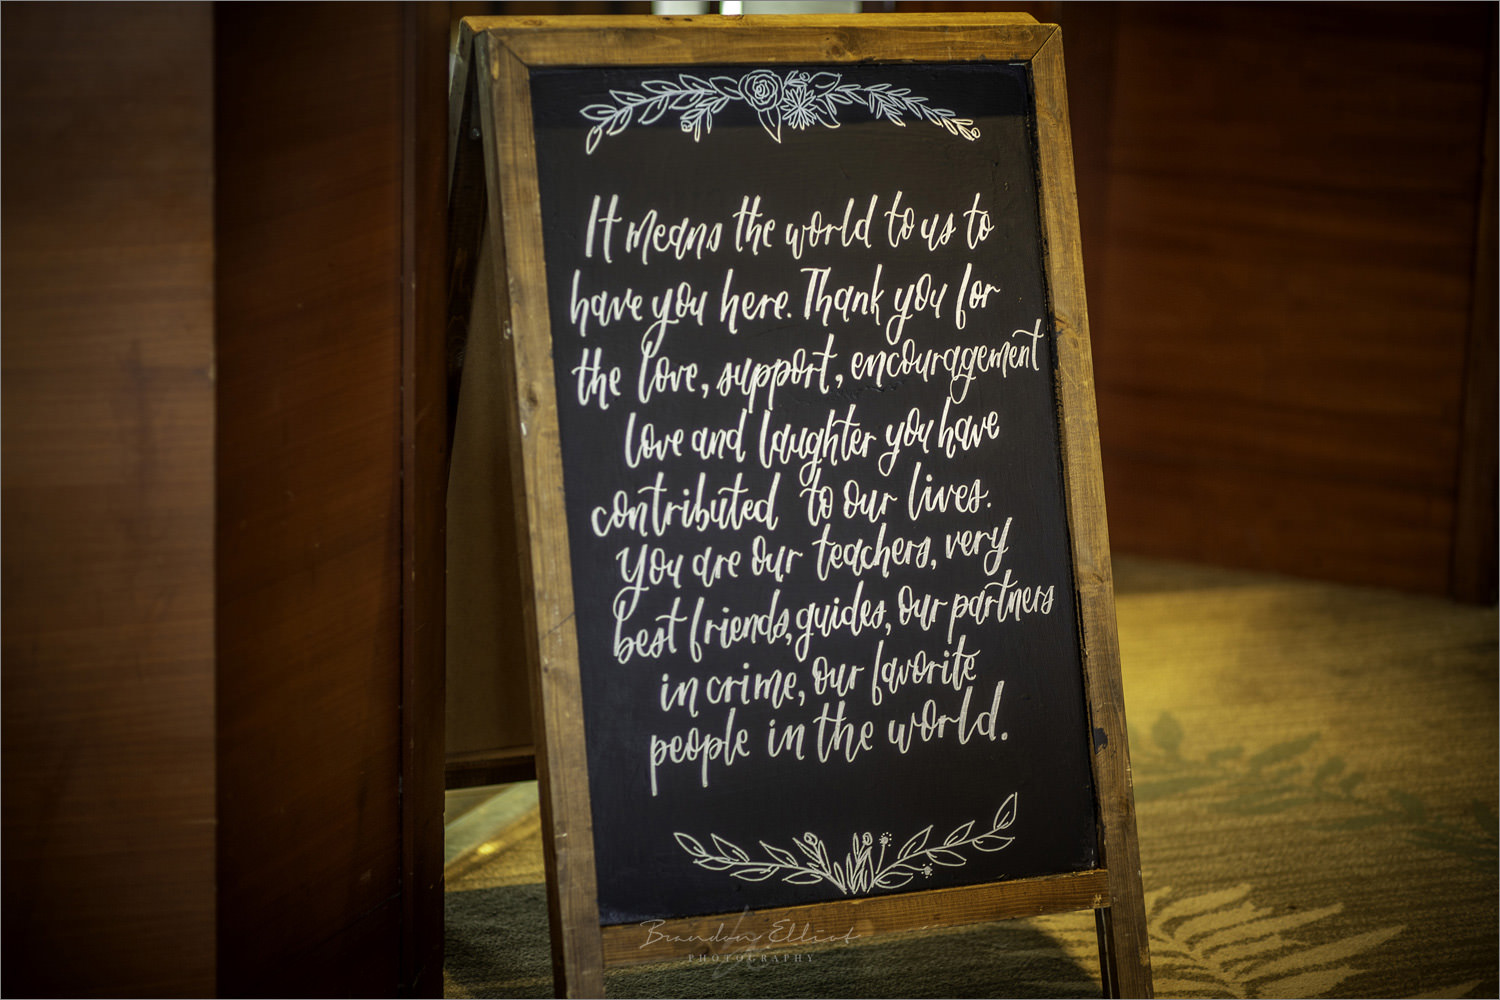 It means the world to us to
have you here. Thank you for
the love, support, encouragement
love and laughter you have
contributed to our lives.
You are our teachers, very
best friends, guides, our partners
in crime, our favorite
people in the world.
Brandon Elliot
PHOTOGRAPHY